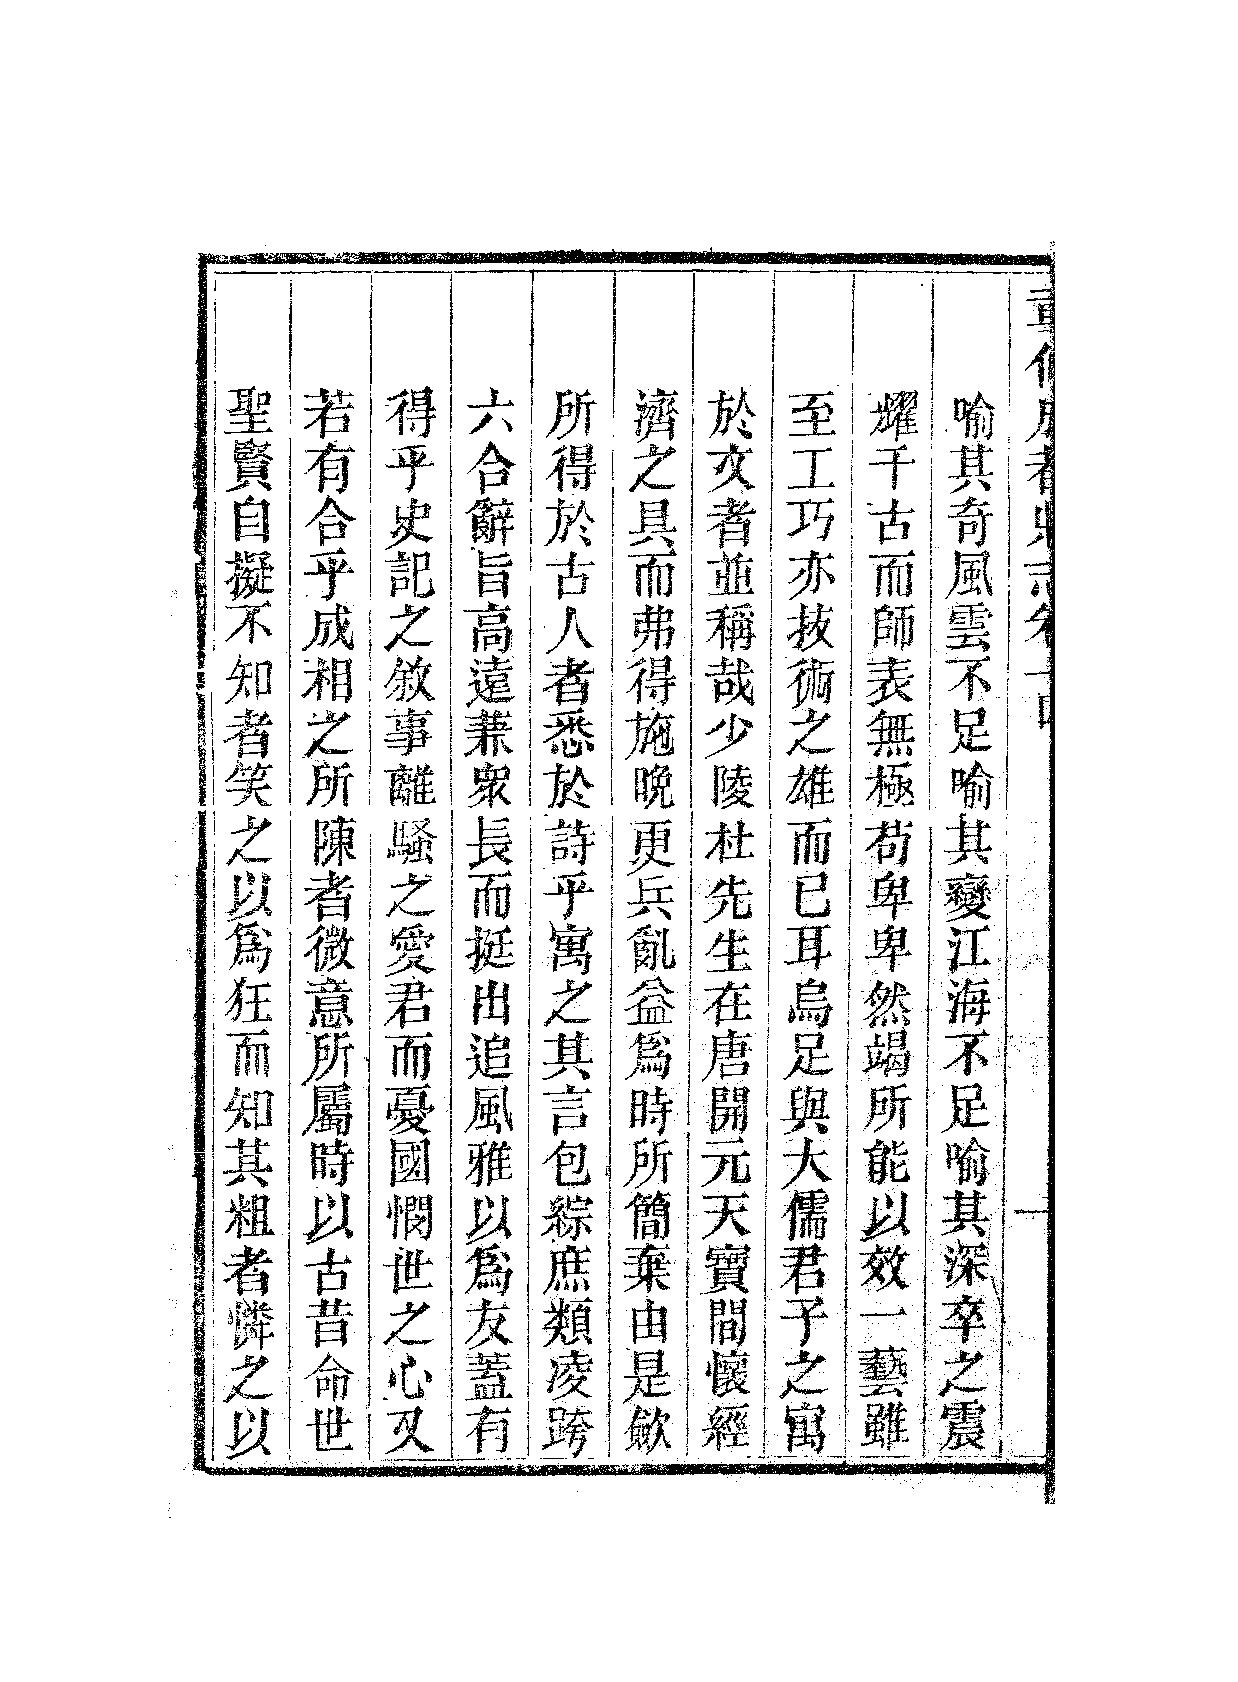 重修成都縣志卷十四 一
喻其奇風雲不足喻其變江海不足喻其深卒之震
耀千古而師表無極苟卑卑然竭所能以效一藝雖
至工巧亦技術之雄而已耳烏足與大儒君子之寓
於文者並稱哉少陵杜先生在唐開元天寶間懷經
濟之具而弗得施晚更兵亂益爲時所簡棄由是歛
所得於古人者悉於詩乎寓之其言包綜庶類凌跨
六合辭旨高遠兼衆長而挺出追風雅以爲友蓋有
得乎史記之敘事離騷之愛君而憂國憫世之心又
若有合乎成相之所陳者微意所屬時以古昔命世
聖賢自擬不知者笑之以爲狂而知其粗者憐之以